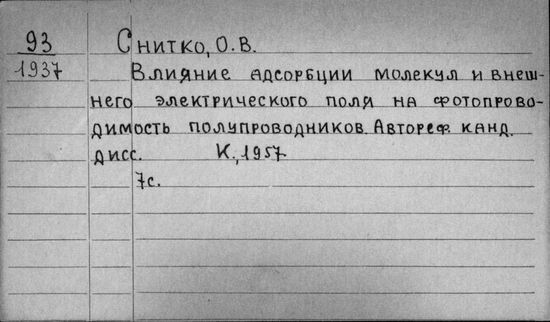 93 Снитко, О.В.
1937 Влияние адсорбции молекул и внеш-
него электрического поля на фотопрово-
димость полупроводников. Автореф. канд.
дисс. К., 1957
7с.